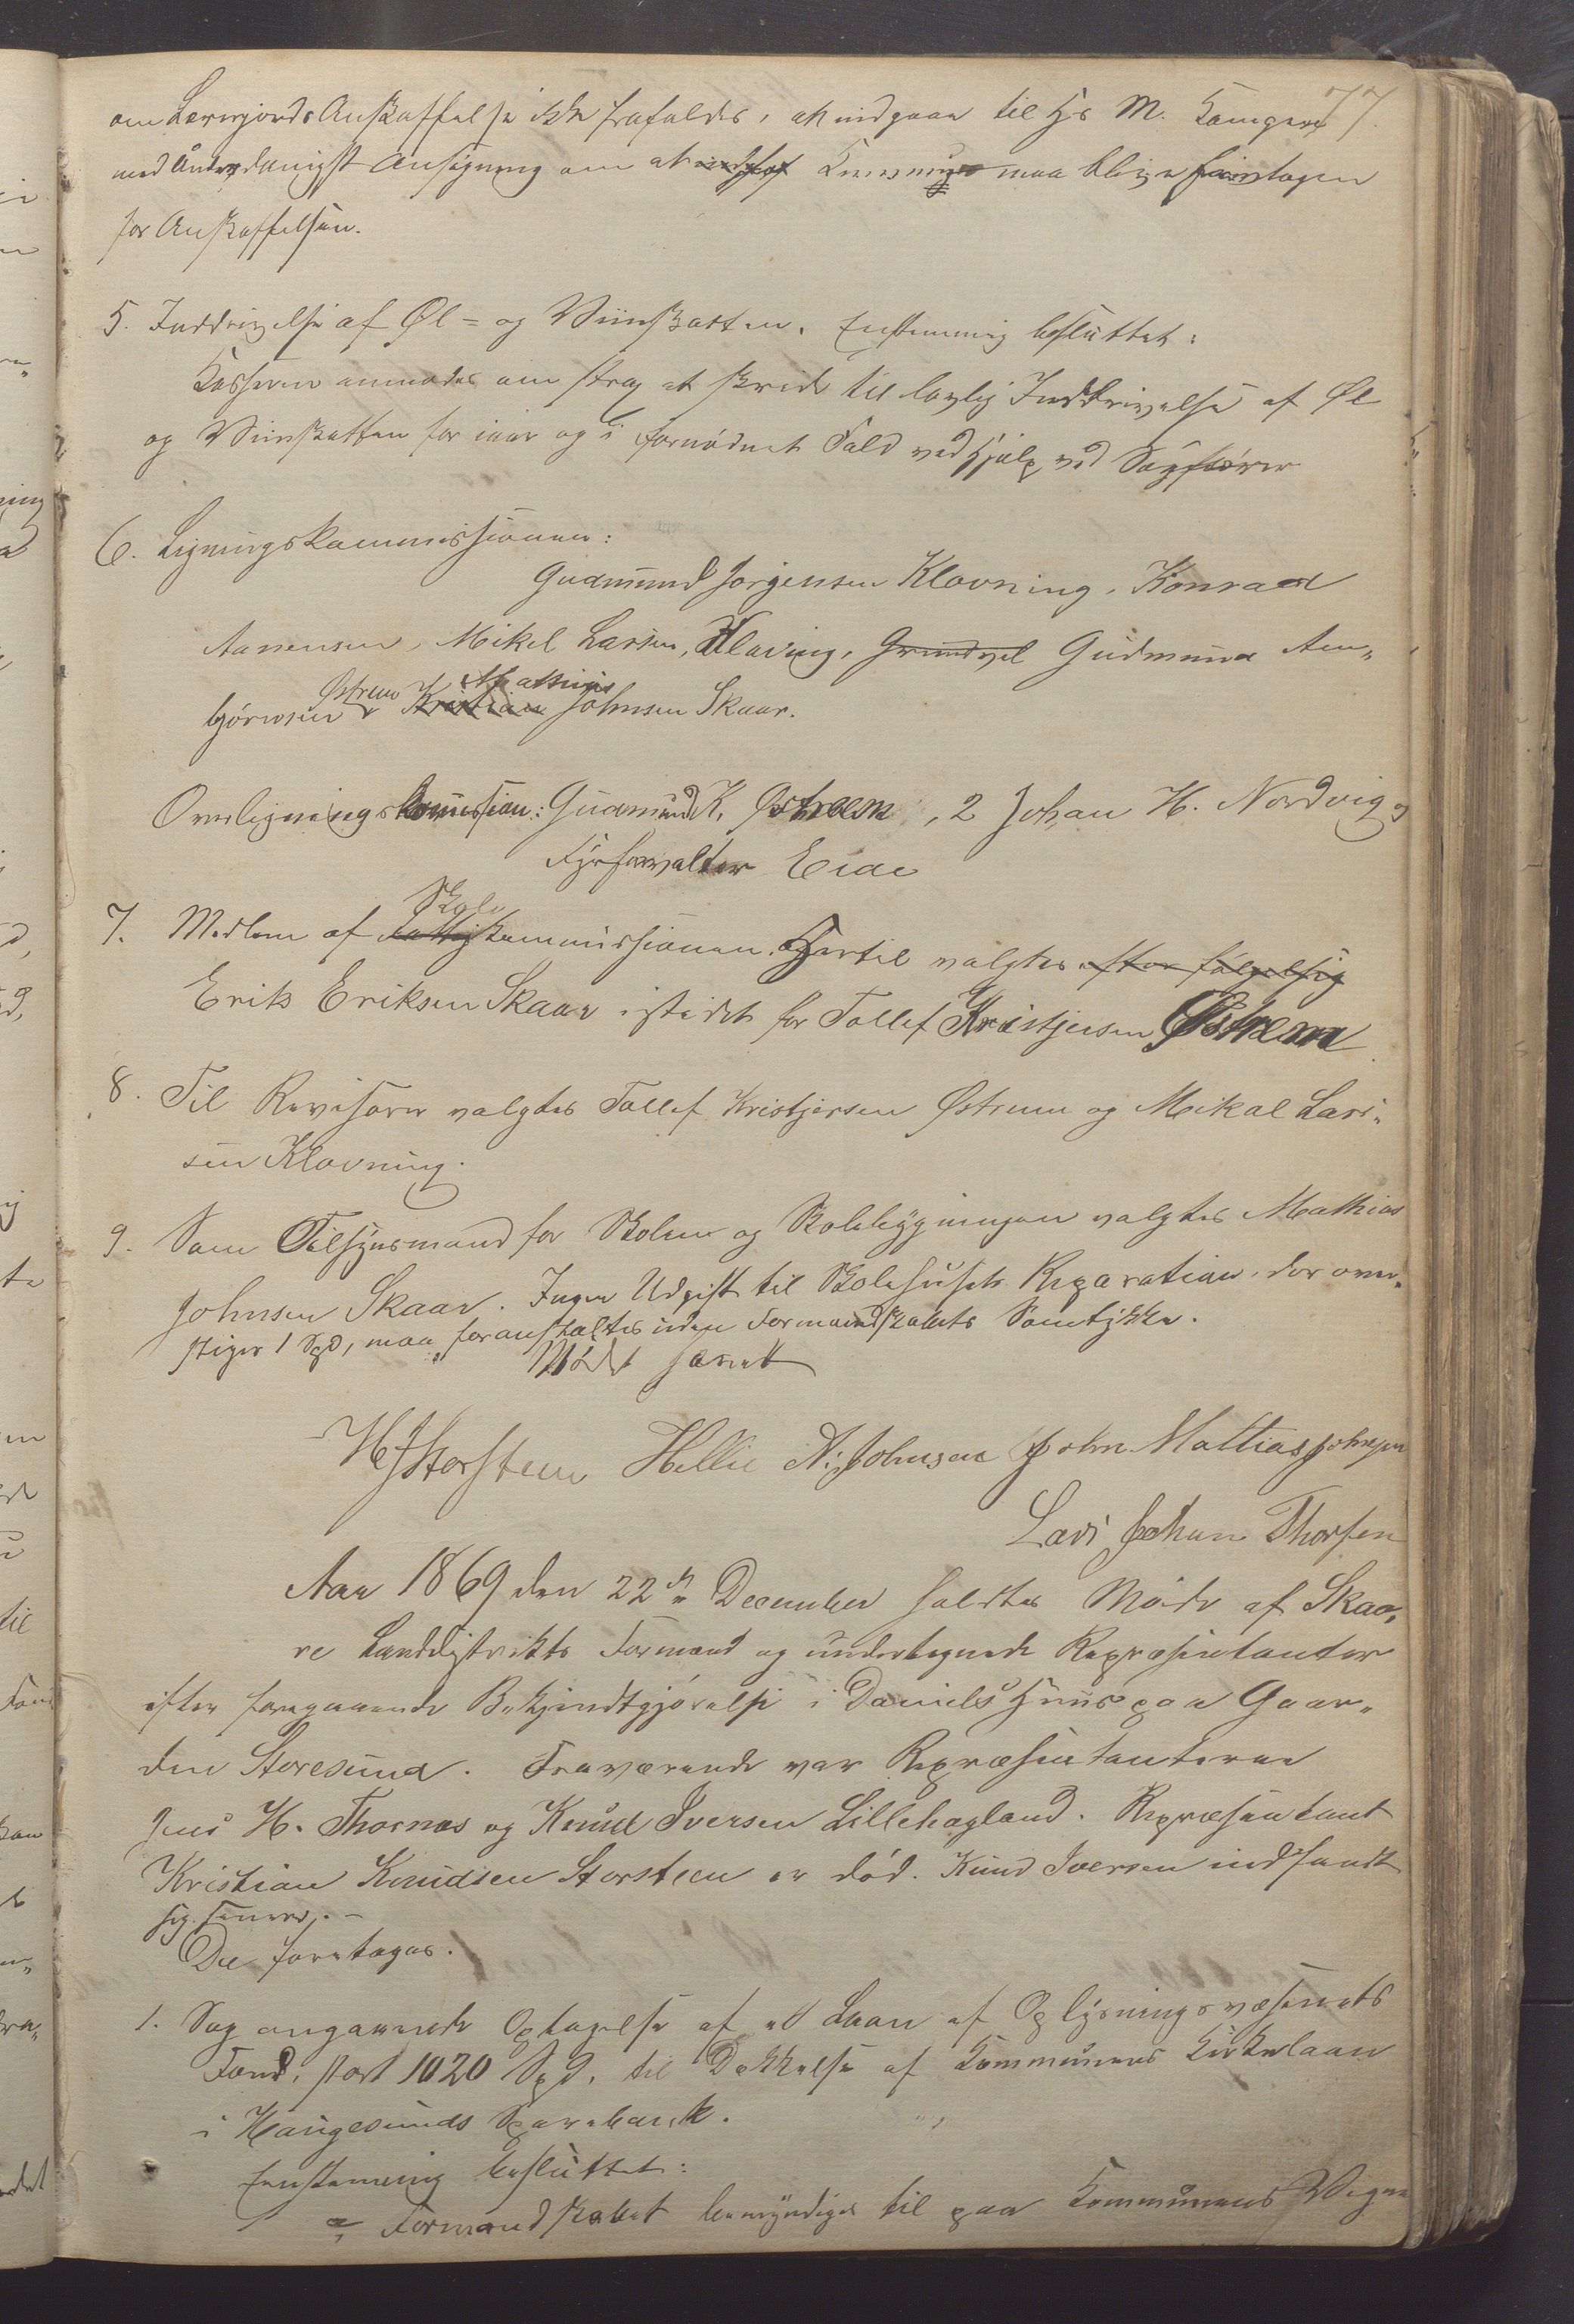 77.
om Lærerjords Anskaffelse ikke frafaldes, at indgaa til Hs M. Kongen
med Underdanigst Ansøgning om at Kommunen maa blive fritagen
for Anskaffelsen.
5. Inddrivelse af Øl- og Viinskatten. Enstemmig besluttet:
Kassereren anmodes om strax at skride til lovlig Inddrivelse af Øl
og Viinskatten for iaar og i fornødent Fald ved Hjælp ved Sagfører
6. Ligningskommissionen:
Gudmund Jørgensen Klovning, Konrad
Aanensen, Mikel Larsen, Klovning, Gudmund Aen„
Østrem Mathias
bjørnsen Kristian Johnsen Skaar.
Overligningskomission: Gudmund K. Østreem, 2 Johan H. Nordvig og
Fyrforvalter Eide
Skole
7. Medlem af Fattigkommissionen. Hertil valgtes efter følgelsig
Erik Eriksen Skaar istedet for Tollef Kristjersen Østrem
8. Til Revisorer valgtes Tollef Kristjersen Østrem og Mikal Lar„
sen Klovning.
9. Som Tilsynsmand for Skolen og Skolebygningen valgtes Mathias
Johnsen Skaar. Ingen Udgift til Skolehusets Reparation, der over„
stiger 1 Spd, maa foranstaltes uden Formandskabets Samtykke.
Mødet hævet
H Storsteen Hellie N. Johnsen John Mattias Johnsen
Lars Johan Thorsen
Aar 1869 den 22de December holdtes Møde af Skaa„
re Landdistrikts Formænd og undertegnede Repræsentanter
efter foregaaende Bekjendtgjørelse i Daniels Huus paa Gaar„
den Storesund. Fraværende var Repræsentanterne
Jens H. Thornæs og Knud Iversen Lillehagland. Repræsentant
Kristian Knudsen Storsteen er død. Knud Iversen indfandt
sig senere. –
Da foretoges.
1. Sag angaaende Optagelse af et Laan af Oplysningsvæsenets
Fond, stort 1020 Spd. til Dækkelse af Kommunens Kirkelaan
i Haugesunds Sparebank.
Enstemmig besluttet:
a, Formandskabet bemyndiges til paa Kommunens Vegne